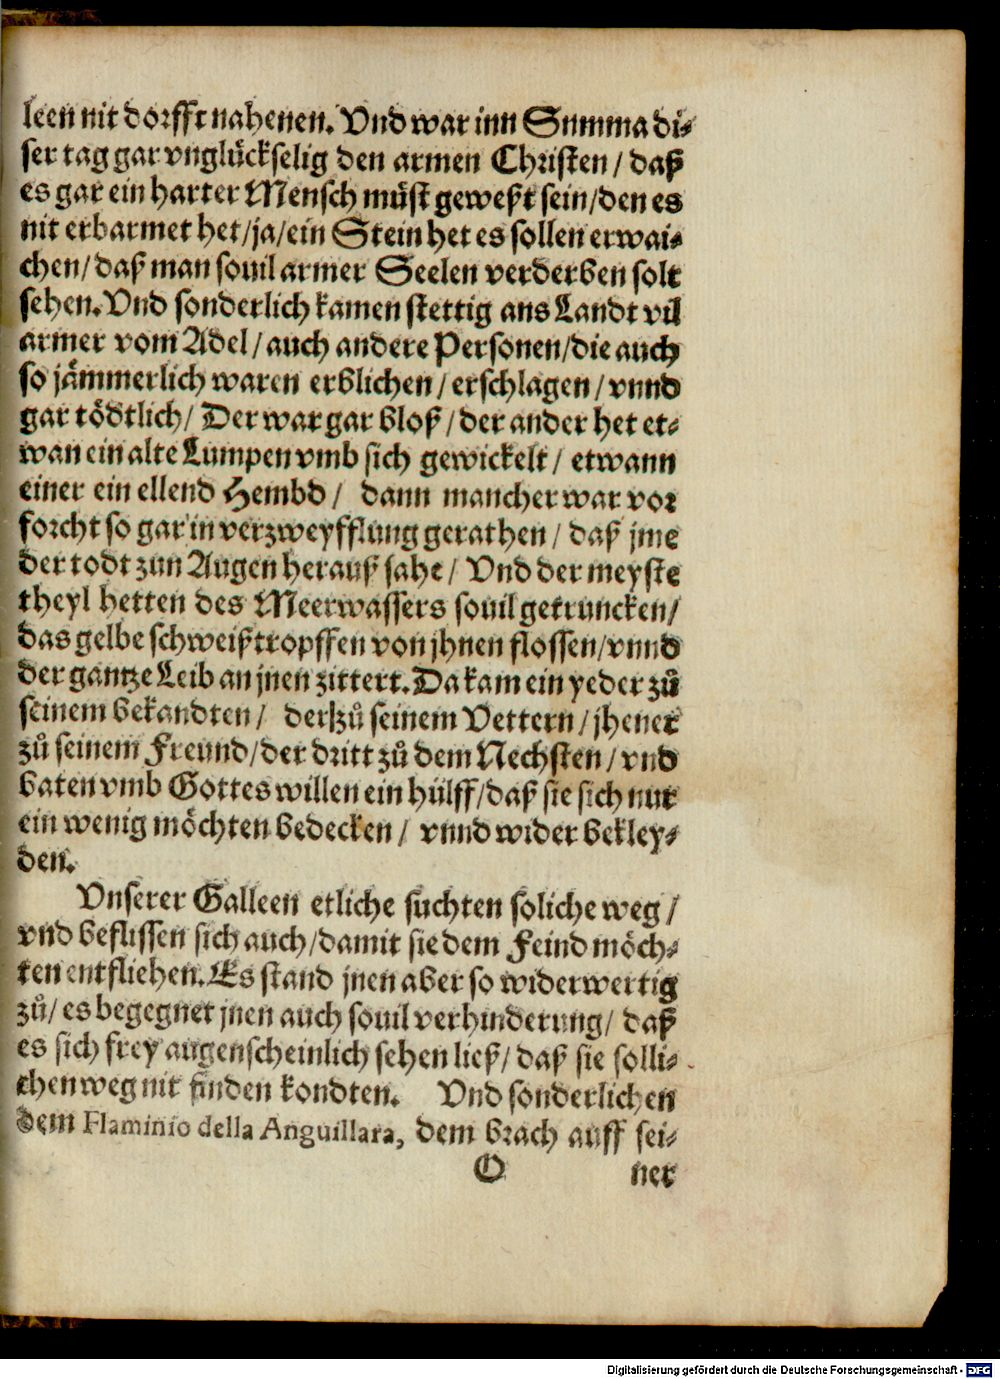 leen nit dorfft nahenen. Vnd war inn Summa di⸗
ser tag gar vnglückselig den armen Christen / daß
es gar ein harter Mensch müst geweßt sein / den es
nit erbarmet het / ja / ein Stein het es sollen erwai⸗
chen / daß man souil armer Seelen verderben solt
sehen. Vnd sonderlich kamen stettig ans Landt vil
armer vom Adel / auch andere Personen / die auch
so jämmerlich waren erblichen / erschlagen / vnnd
gar tödtlich / Der war gar bloß / der ander het et⸗
wan ein alte Lumpen vmb sich gewickelt / etwann
einer ein ellend Hembd / dann mancher war vor
forcht so gar in verzweyfflung gerathen / daß jme
der todt zun Augen herauß sahe / Vnd der meyste
theyl hetten des Meerwassers souil getruncken /
das gelbe schweißtropffen von jhnen flossen / vnnd
der gantze Leib an jnen zittert. Da kam ein yeder zů
seinem bekandten / der zů seinem Vettern / jhener
zů seinem Freund / der dritt zů dem Nechsten / vnd
baten vmb Gottes willen ein hülff / daß sie sich nur
ein wenig möchten bedecken / vnnd wider bekley⸗
den.
Vnserer Galleen etliche suchten soliche weg /
vnd beflissen sich auch / damit sie dem Feind möch⸗
ten entfliehen. Es stand jnen aber so widerwertig
zů / es begegnet jnen auch souil verhinderung / daß
es sich frey augenscheinlich sehen ließ / daß sie solli⸗
chen weg nit finden kondten. Vnd sonderlichen
dem Flaminio della Anguillara, dem brach auff sei⸗
O ner
Digitalisierung gefördert durch die Deutsche Forschungsgemeinschaft - DFG